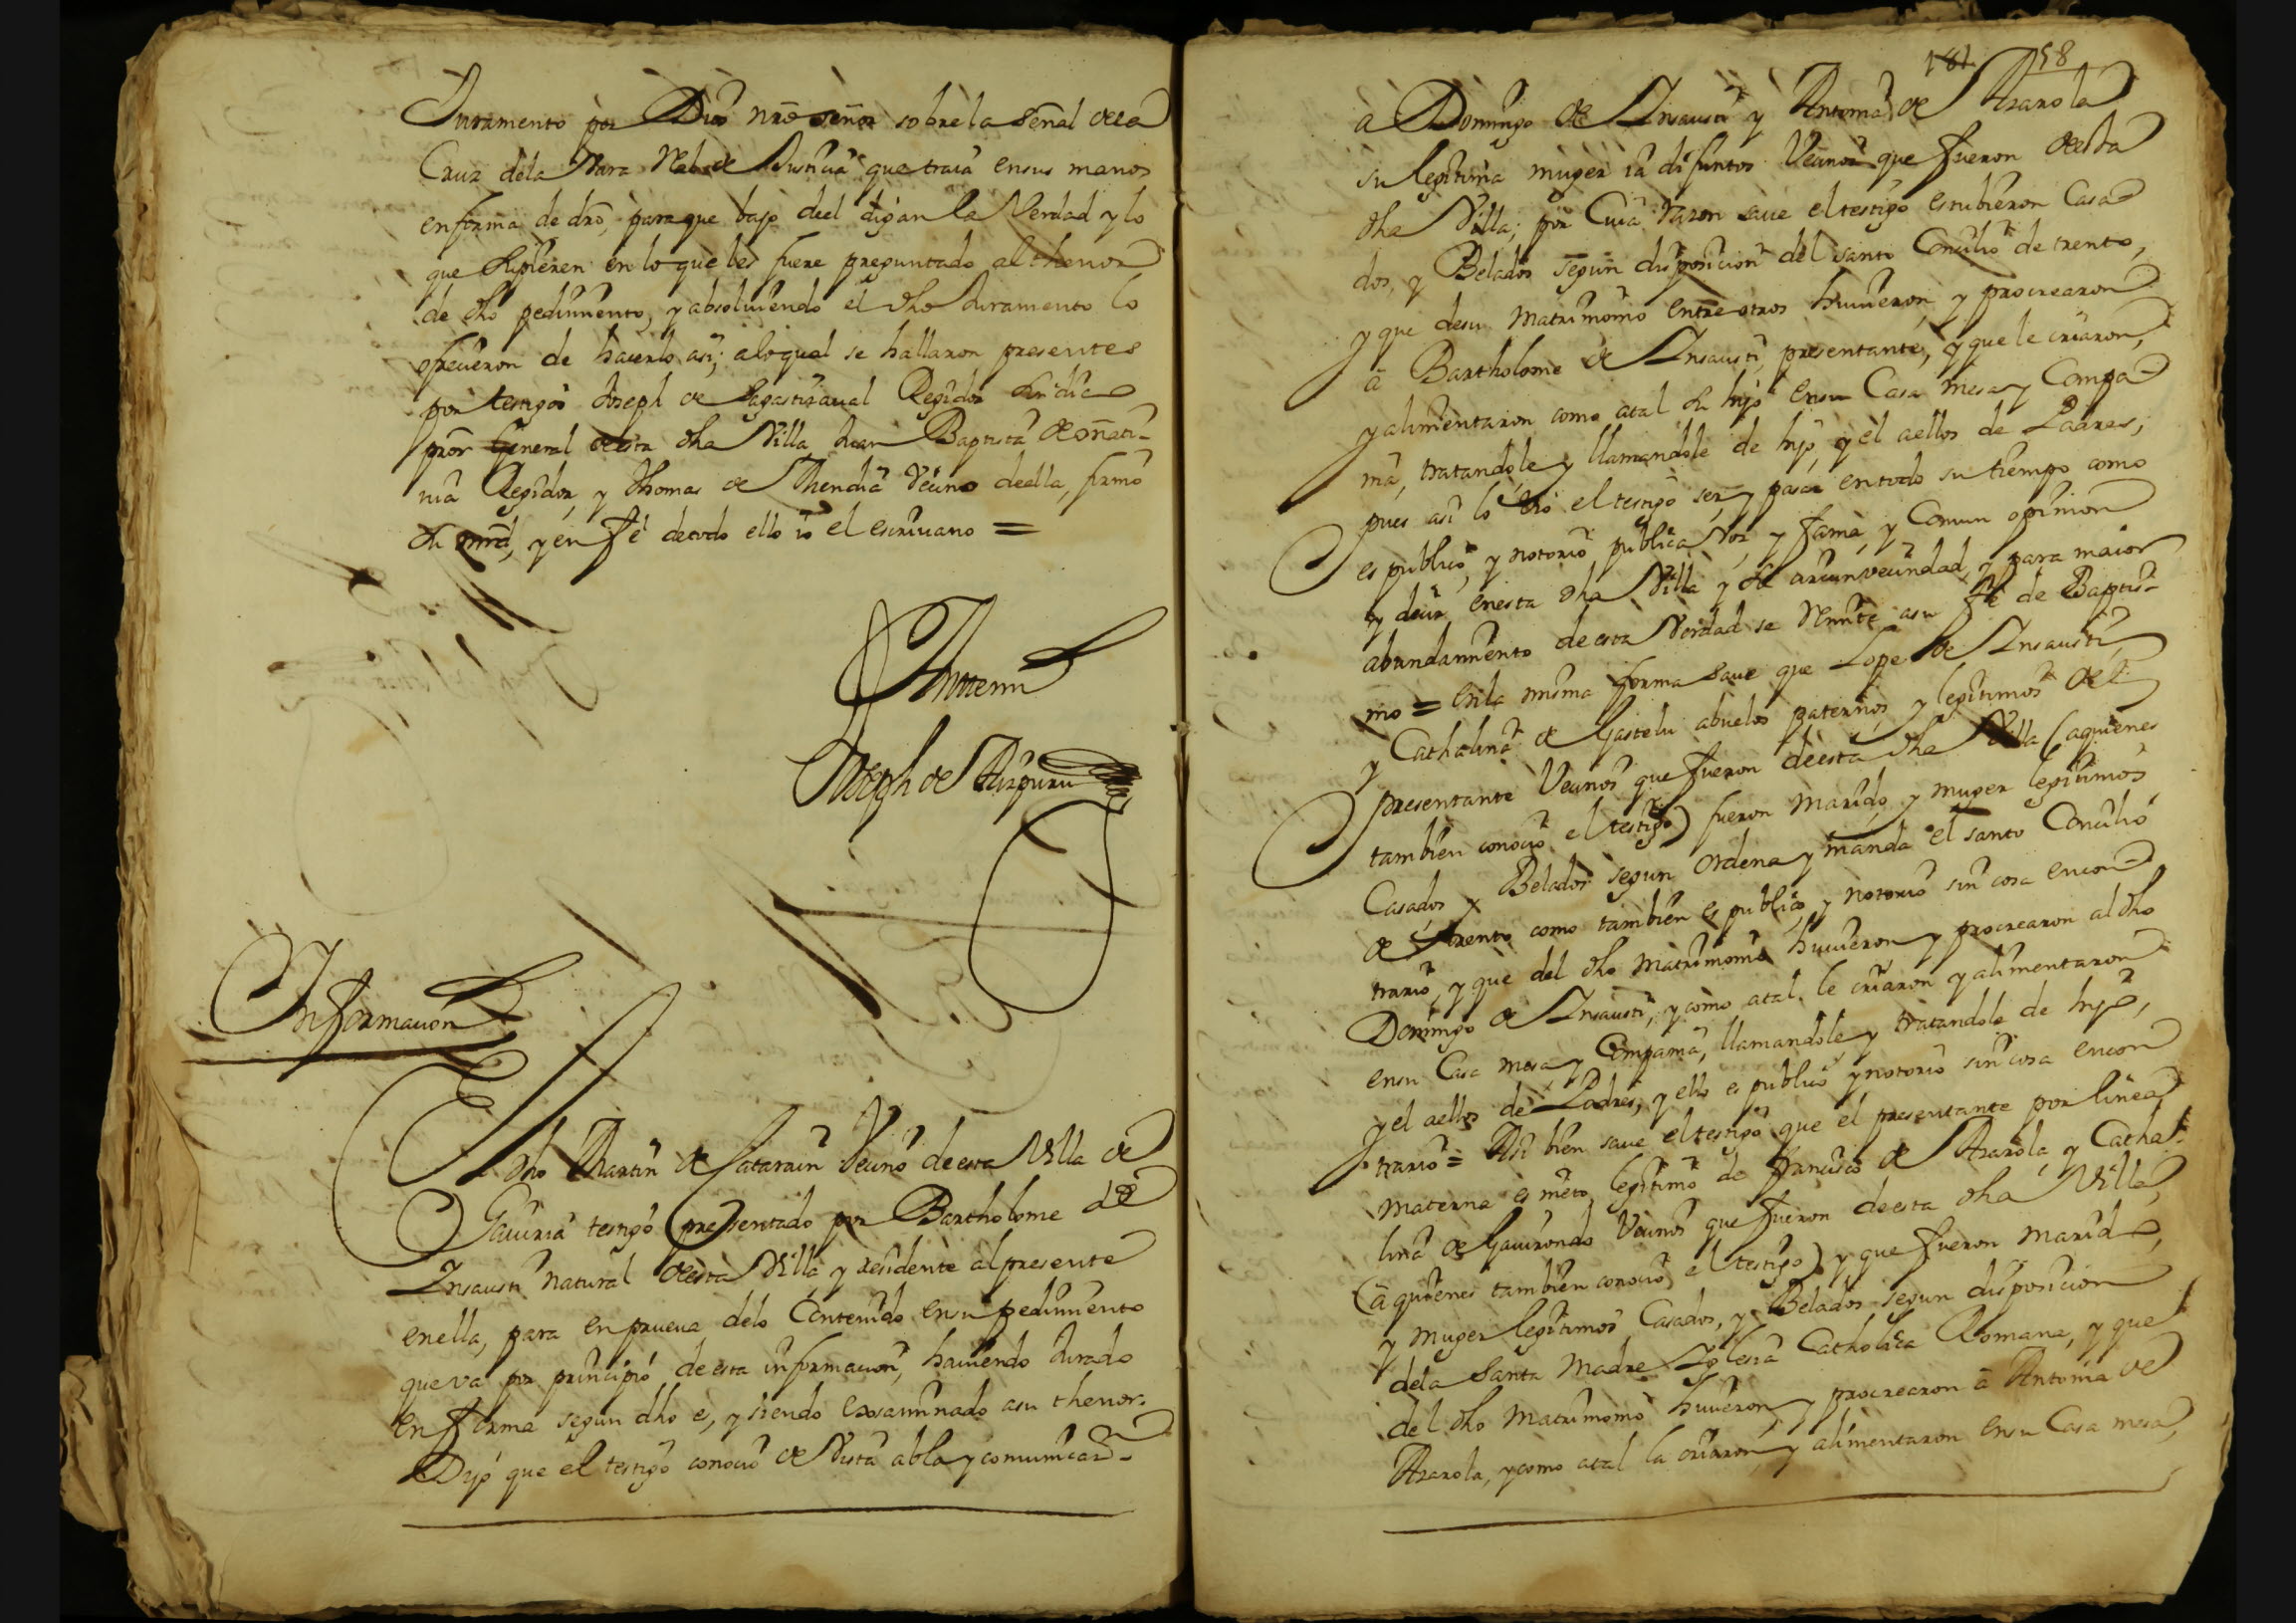 Juramento por Dios nrõ señor sobre la señal dela
Cruz dela Vara Real de Justicia que traia ensus manos
en forma de drõ, para que bajo deel digan la Verdad y lo
que supieren en lo que les fuere preguntado al thenor
de dho pedimiento, y absoluiendo el dho Juramento lo
ofrecieron de hacerlo asi; alo qual se hallaron presentes
por testigos Joseph de Sagastizaual Regidor Sindico
prõr General desta dha Villa Juan Baptista de Oñati-
uia Regidor, y Thomas de Vecino deella, firmo
Su mrd, y en fé detodo ello io el escriuano =
Antemi
Joseph de Aizpuru
Informacion
El dho Martin de Vecino deesta Villa de
Gauiria testigo presentado por Bartholome de
Insausti natural deesta Villa y residente al presente
enella, para en prueua delo Contenido ensu pedimiento
que va por principio deesta informacion, hauiendo Jurado
en forma segun dho e, y siendo exsaminado asu thenor.
Dijo que el testigo conocio de Vista abla y comunicaz.-
181 158
à Domingo de Insausti y Antonia de Ararola
su legitima muger ia difuntos Vecinos que fueron deesta
dha Villa; por Cuia razon saue el testigo estubieron Casa-
dos, y Belados segun disposicion del santo Concilio de trento,
y que desu Matrimonio entre otros huuieron, y procrearon
à Bartholome de Insausti presentante, y que le criaron,
y alimentaron como atal su hijo ensu Casa mesa y Compa-
nia, tratandole y llamandole de hijo, y él aellos de Padres;
pues asi lo vio el testigo ser, y pasar entodo su tiempo como
es publico, y notorio publica Voz, y fama, y Comun opinion
y decir enesta dha Villa y su circunvecindad, y para maior
abundamiento de esta Verdad se remite asu fé de Baptis-
mo = Enla misma forma saue que Lope de Insausti,
y Cathalina de Gastelu abuelos paternos y legitimos del
presentante Vecinos que fueron deesta dha Villa (aquienes
tambien conocio el testigo) fueron marido, y muger legitimos
Casados y Belados segun Ordena y manda el santo Concilio
de Trento como tambien es publico, y notorio sin cosa encon-
trario, y que del dho Matrimonio huuieron y procrearon al dho
Domingo de Insausti, y como atal, le criaron y alimentaron
ensu Casa mesa y Compania, llamandole y tratandole de hijo,
y el aellos de Padres, y ello es publico y notorio sin cosa encon
trario = Asi bien saue el testigo que el presentante por linea
materna es nieto legitimo de francisco de Ararola y Catha-
lina de Gauirondo Vecinos que fueron deesta dha Villa,
(à quienes tambien conocio el testigo) y que fueron marido,
y muger legitimos Casados, y Belados segun disposicion
dela Santa Madre Iglesia Catholica Romana, y que
del dho Matrimonio huuieron, y procrearon à Antonia de
Ararola, y como atal la criaron, y alimentaron ensu Casa mesa,